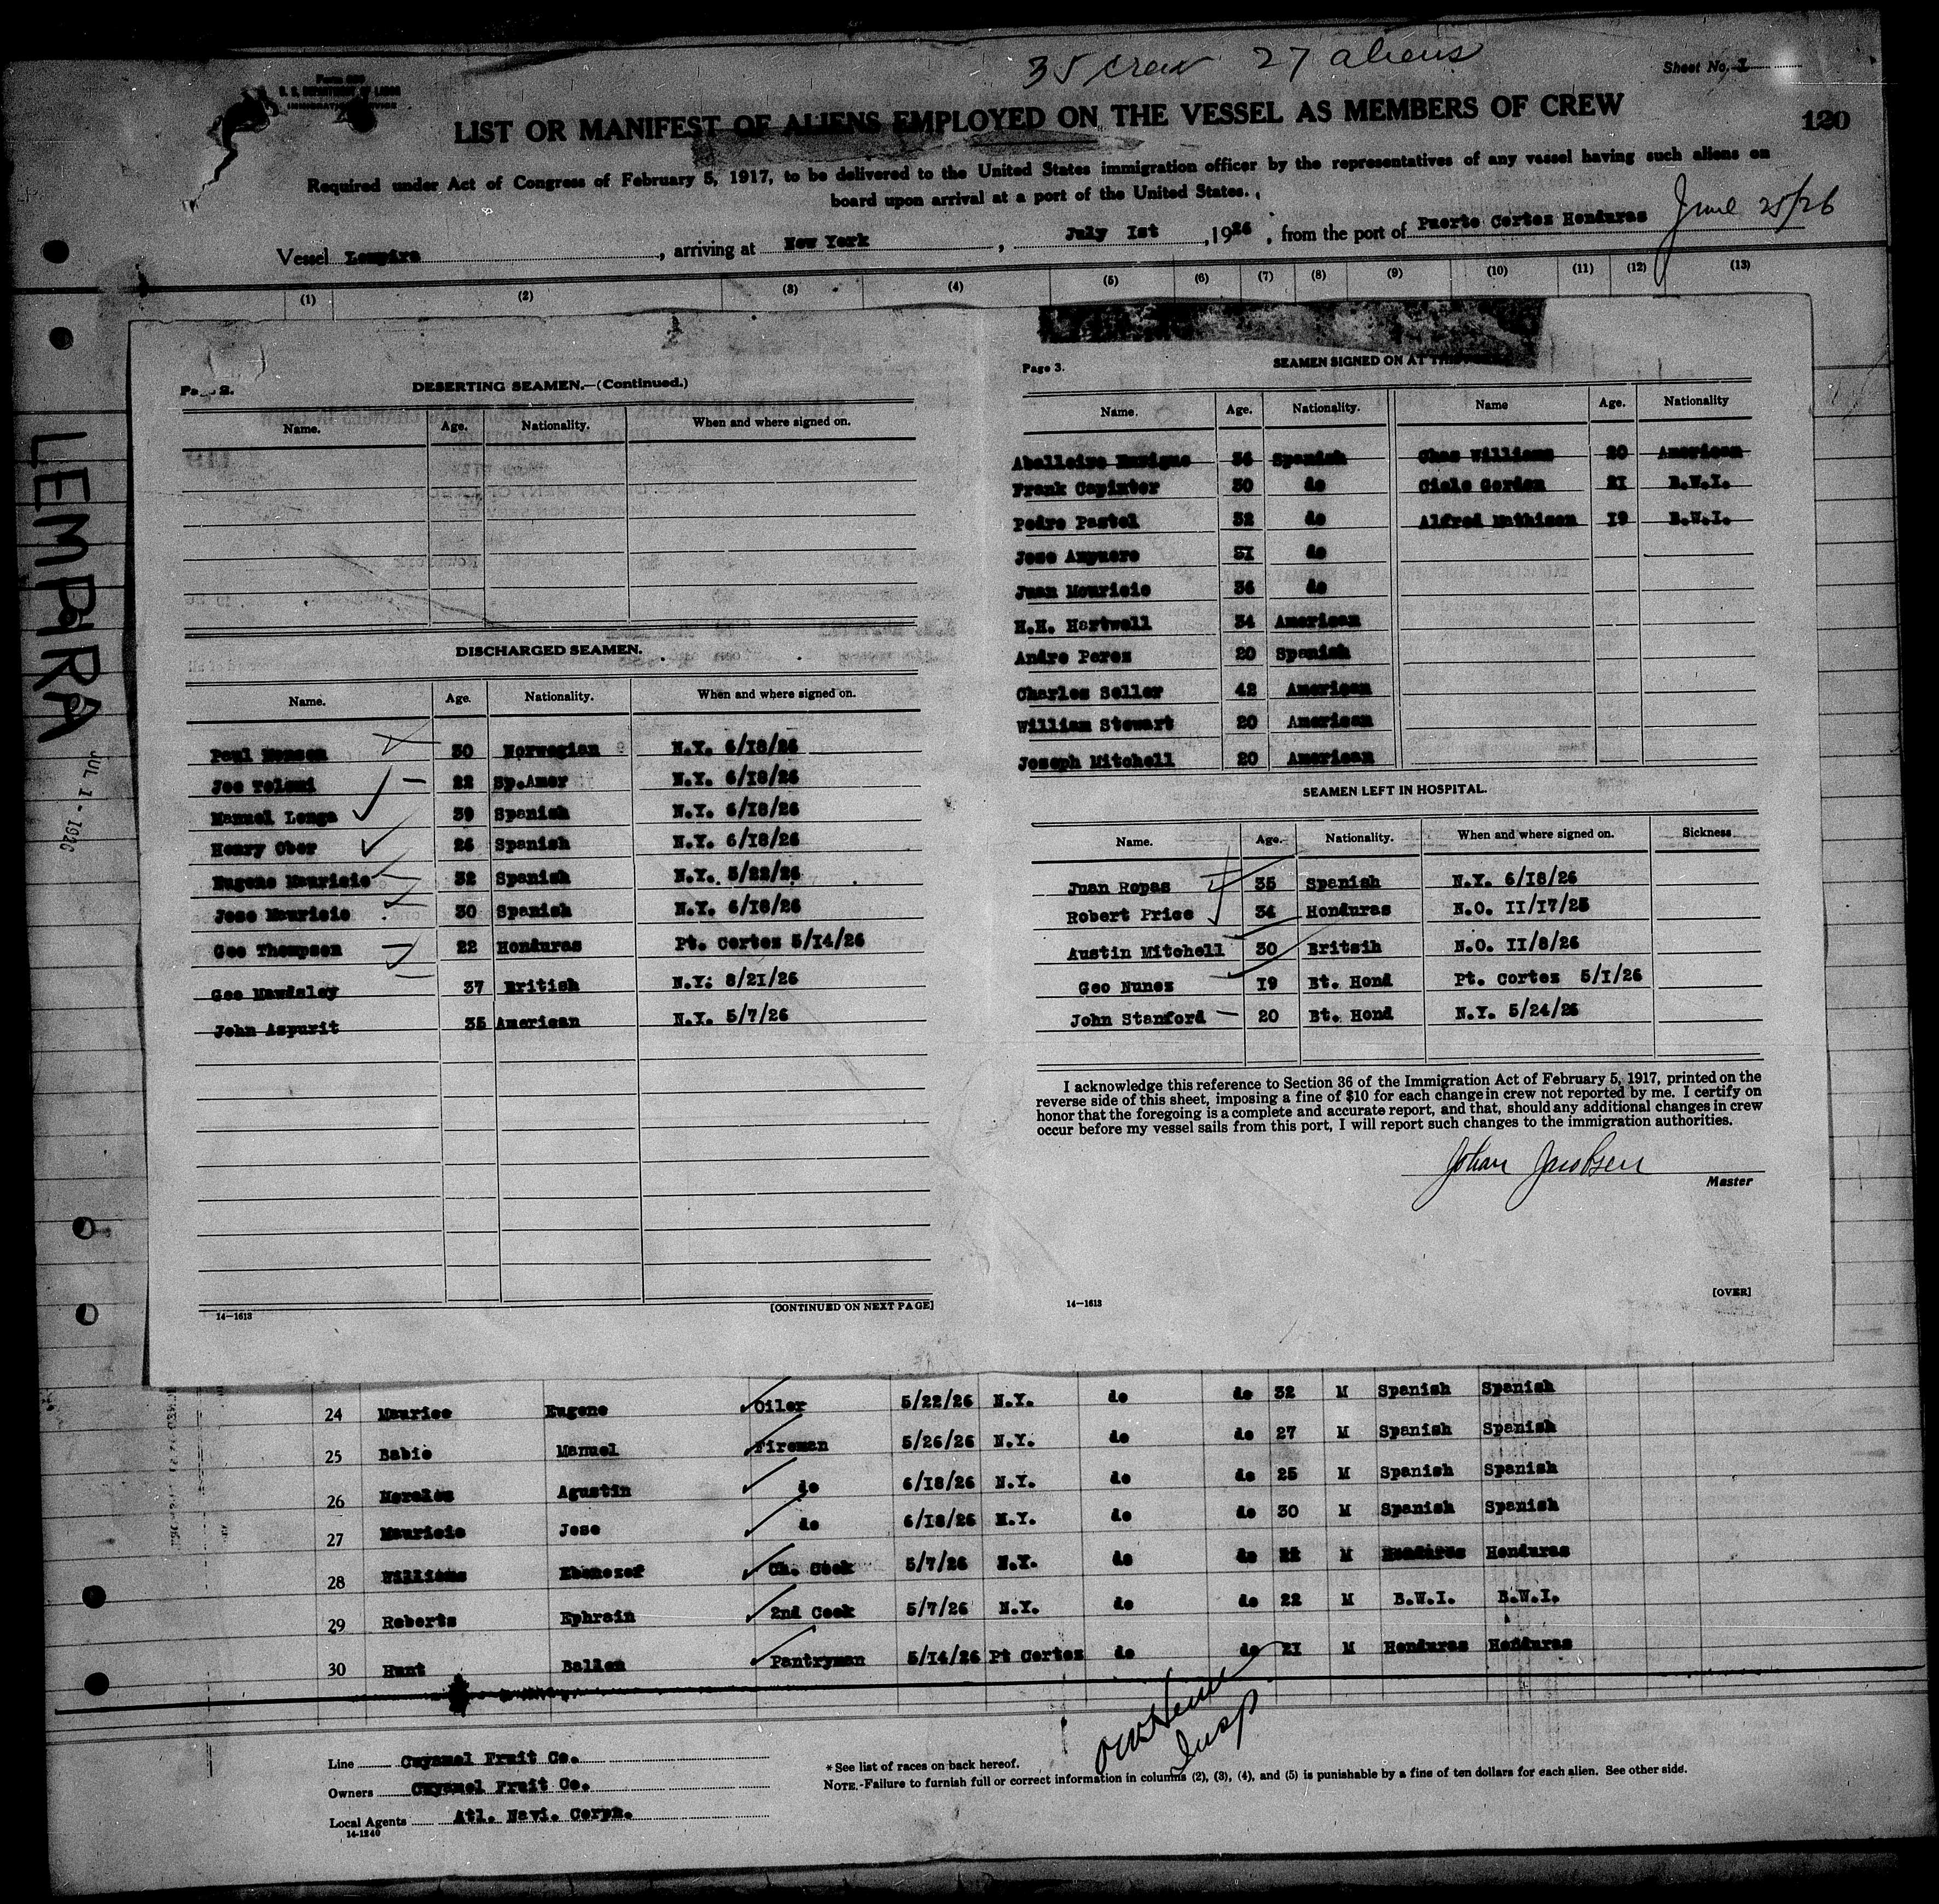 35 crew 27 aliens
Sheet No. 1
Form 680
U. S. DEPARTMENT OF LABOR
IMMIGRATION SERVICE
LIST OR MANIFEST OF ALIENS EMPLOYED ON THE VESSEL AS MEMBERS OF CREW
120
Required under Act of Congress of February 5, 1917, to be delivered to the United States immigration officer by the representatives of any vessel having such aliens on
board upon arrival at a port of the United States.
Vessel Lempira, arriving at New York, July 1st, 1926, from the port of Puerto Cortez Honduras June 25/26
(1) (2) (3) (4) (5) (6) (7) (8) (9) (10) (11) (12) (13)
LEMPIRA
JUL 1 - 1926
Page 2.
DESERTING SEAMEN.—(Continued.)
Name. Age. Nationality. When and where signed on.
DISCHARGED SEAMEN.
Name. Age. Nationality. When and where signed on.
Paul Monsen 30 Norwegian N.Y. 6/18/26
Joe 22 Sp.Amer N.Y. 6/18/26
Manuel Longa 39 Spanish N.Y. 6/18/26
Henry Ober 26 Spanish N.Y. 6/18/26
Eugene Mauricio 32 Spanish N.Y. 5/22/26
Jose Mauricio 30 Spanish N.Y. 6/18/26
Geo Thompson 22 Honduras Pt. Cortez 5/14/26
Geo Mawdsley 37 British N.Y. 8/21/26
John Aspurit 35 American N.Y. 5/7/26
[CONTINUED ON NEXT PAGE]
14—1613
Page 3.
SEAMEN SIGNED ON AT
Name. Age. Nationality. Name Age. Nationality
Aballeiro Enrique 36 Spanish Chas Williams 20 American
Frank Capinter 30 do Gordon 21 B.W.I.
Pedro Pastol 32 do Alfred Mathison 19 B.W.I.
Jose Ampuero 31 do
Juan Mouricio 36 do
H.H. Hartwell 34 American
Andre Perez 20 Spanish
Charles Seller 42 American
William Stewart 20 American
Joseph Mitchell 20 American
SEAMEN LEFT IN HOSPITAL.
Name. Age. Nationality. When and where signed on. Sickness
Juan Ropas 35 Spanish N.Y. 6/18/26
Robert Price 34 Honduras N.O. 11/17/25
Austin Mitchell 30 Britsih N.O. 11/8/26
Geo Nunez 19 Bt. Hond Pt. Cortez 5/1/26
John Stanford 20 Bt. Hond N.Y. 5/24/26
I acknowledge this reference to Section 36 of the Immigration Act of February 5, 1917, printed on the
reverse side of this sheet, imposing a fine of $10 for each change in crew not reported by me. I certify on
honor that the foregoing is a complete and accurate report, and that, should any additional changes in crew
occur before my vessel sails from this port, I will report such changes to the immigration authorities.
Johan Jacobsen
Master
14—1613
[OVER]
24 Maurice Eugene Oiler 5/22/26 N.Y. do do 32 M Spanish Spanish
25 Babio Manuel Fireman 5/26/26 N.Y. do do 27 M Spanish Spanish
26 Morales Agustin do 6/18/26 N.Y. do do 25 M Spanish Spanish
27 Mauricio Jose do 6/18/26 N.Y. do do 30 M Spanish Spanish
28 Williams Ebenezer Ch. Cook 5/7/26 N.Y. do do 22 M Honduras Honduras
29 Roberts Ephrain 2nd Cook 5/7/26 N.Y. do do 22 M B.W.I. B.W.I.
30 Hunt Ballen Pantryman 5/14/26 Pt Cortez do do 21 M Honduras Honduras
Insp
Line Cuyamel Fruit Co.
Owners Cuyamel Fruit Co.
Local Agents Atl. Navi. Corpn.
14-1240
* See list of races on back hereof.
NOTE.-Failure to furnish full or correct information in columns (2), (3), (4), and (5) is punishable by a fine of ten dollars for each alien. See other side.